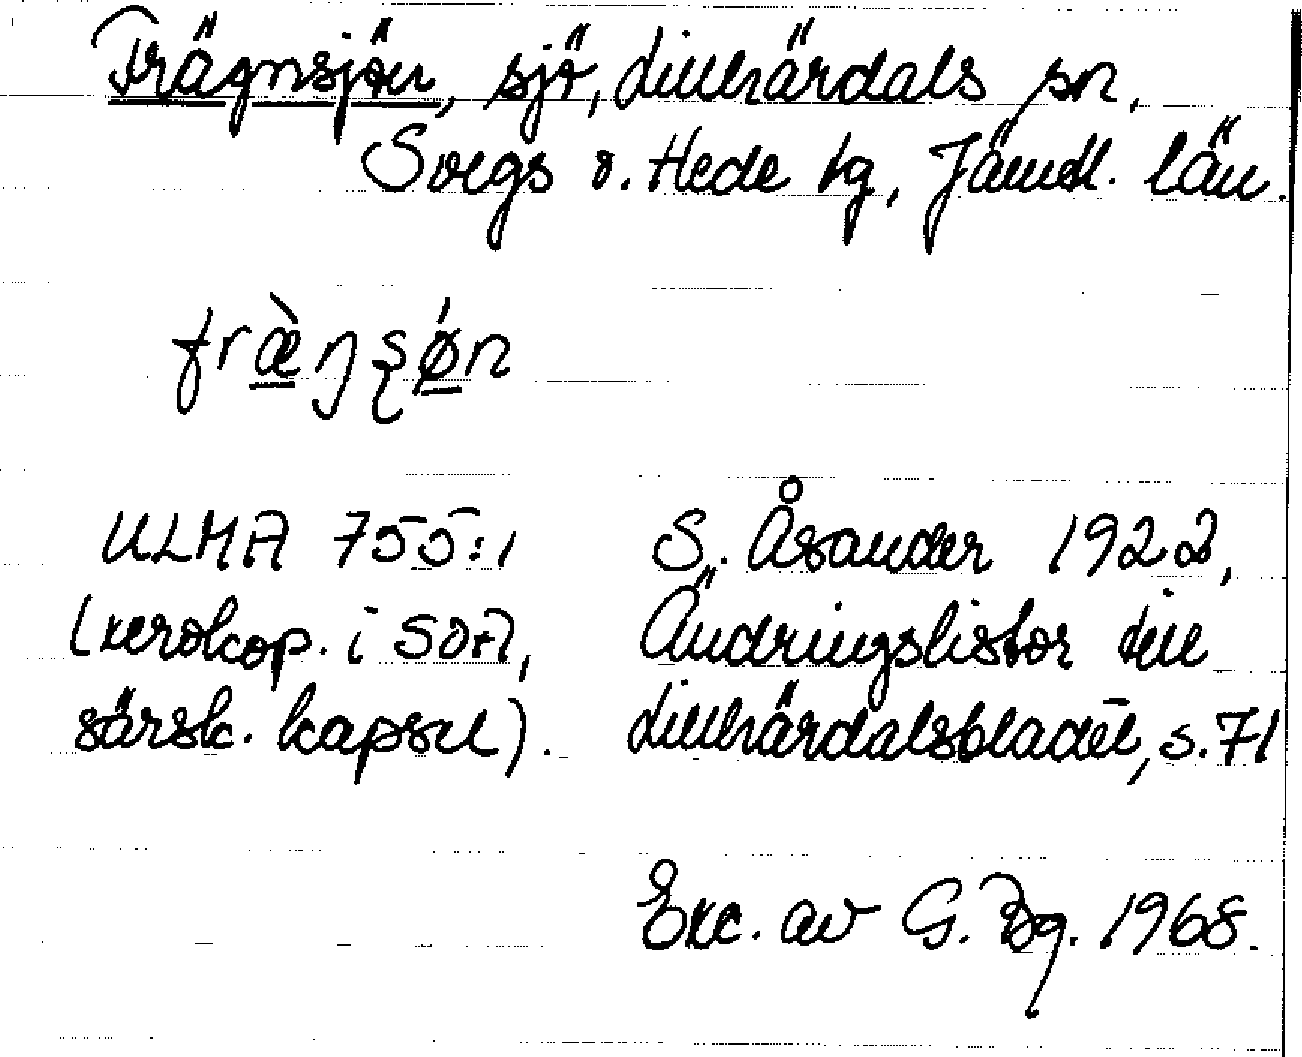 Frägnsjön, sjö, Lillhärdals sn,
Svegs o. Hede tg, Jämtl. län.
fræ̀ŋsǿn
ULMA 755:1
(xerokop. i SOA,
särsk. kapsel).
S. Åsander 1922,
Ändringslistor till
Lillhärdalsbladet, s. 71
Exc. av G. Bg. 1968.